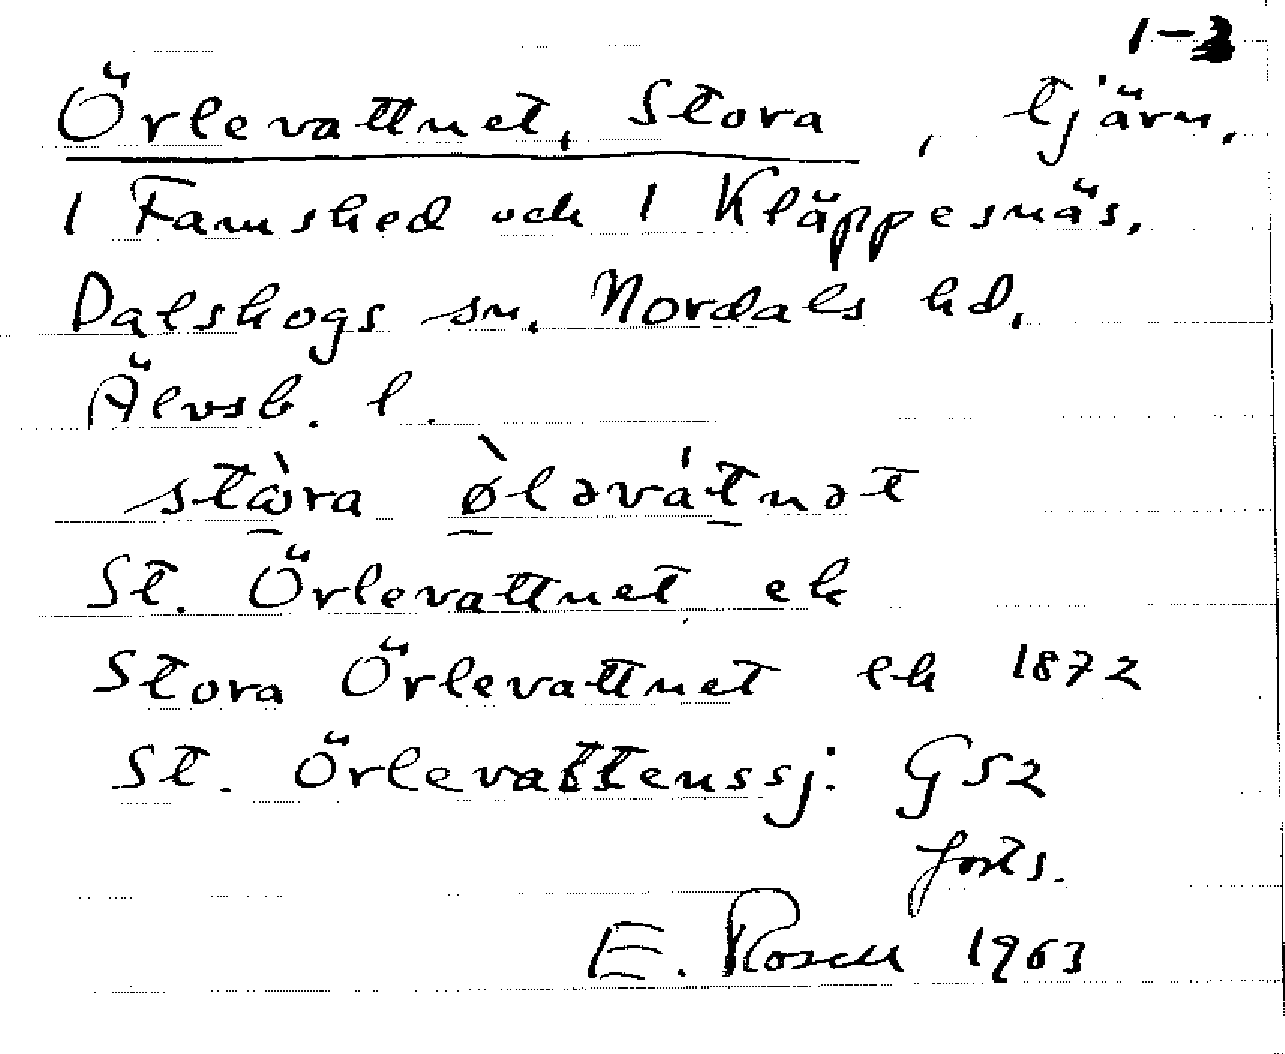 1-3
Örlevattnet, Stora, tjärn,
1 Famshed och 1 Kläppesnäs,
Dalskogs sn. Nordals hd,
Älvsb. l.
stὼra ø̀ləvátnət
St. Örlevattnet ek
Stora Örlevattnet ek 1872
St. Örlevattenssj: GS2
forts.
E. Rosell 1963